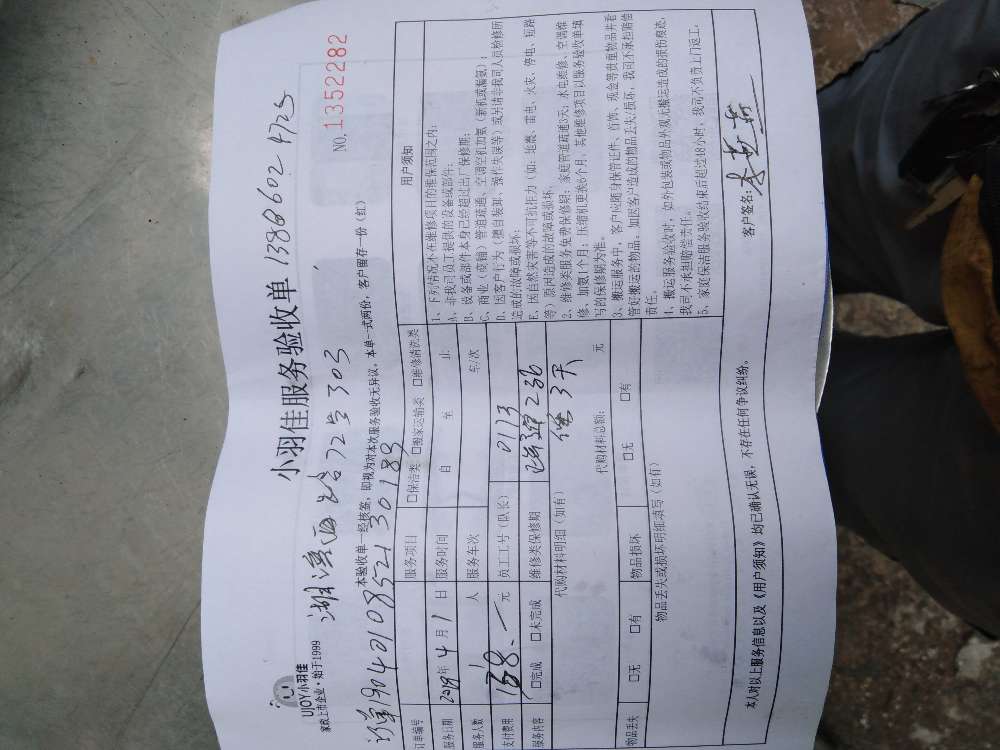 UJOY小羽佳
家政上市企业·始于1999
小羽佳服务验收单
13886024725
NO.1352282
湖滨西路72号303
本验收单一经核签，即视为对本次服务验收无异议，本单一式两份，客户留存一份（红）
订单编号
190401085213018
服务项目 □保洁类 □搬家运输类 □维修清洗类
服务日期 2019年4月1日 服务时间 自 至 止
服务人数 人 服务车次 车/次
支付费用 168.- 元 员工工号（队长） 0173
服务内容 □完成 □未完成 维修类保修期 3天
代购材料明细（如有）
代购材料总额： 元
物品丢失 □无 □有 物品损坏 □无 □有
物品丢失或损坏明细填写（如有）
用户须知
1、下列情况不在维修项目的维保范围之内：
A、非我司员工提供的设备或部件；
B、设备或部件本身已经超过出厂保修期；
C、商业（疫韧）管道疏通、空调空机加氨（新机或漏氨）；
D、因客户行为（擅自装卸、操作失误等）或另请非我司人员检修所
造成的故障或损坏；
E、因自然灾害等不可抗拒力（如：地震、雷电、火灾、停电、短路
等）原因造成的故障或损坏。
2、维修类服务免费保修期：家庭管道疏通3天；水电维修、空调维
修、加氨1个月；压缩机更换6个月，其他维修项目以服务验收单填
写的保修期为准。
3、搬运服务中，客户应随身保管证件、首饰、现金等贵重物品并看
管好搬运的物品，如因客户造成的物品丢失/损坏，我司不承担赔偿
责任。
4、搬运服务验收时，如外包装或物品外观无搬运造成的损伤痕迹，
我司不承担赔偿责任。
5、家庭保洁服务验收结束后超过48小时，我司不负责上门返工。
本人对以上服务信息以及《用户须知》均已确认无误，不存在任何争议纠纷。
客户签名：